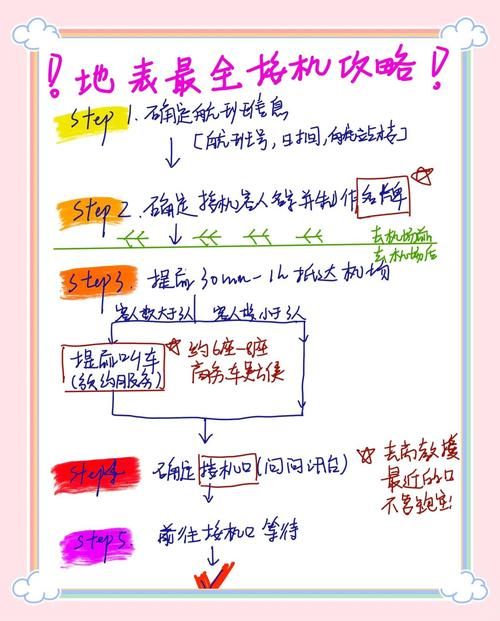 ！地表最全接机攻略！
Step 1. 确定航班信息
[航班号，时间，航站楼]
Step 2. 确定接机客人名字并制作名牌
去机场前
去机场后
Step 3. 提前30min-1h抵达机场
客人数大于3人 客人数小于3人
提前叫车
(预约服务)
约6座-8座
商务车等候
Step 4. 确定接机口(问问讯台)
去离该接
最近的口
不会跑空
Step 5. 前往接机口等待